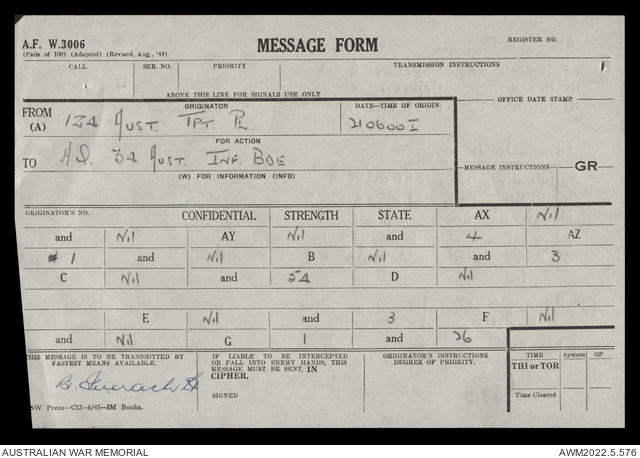 A.F. W.3006
(Pads of 100) (Adapted) (Revised, Aug., '44)
MESSAGE FORM
REGISTER NO.
CALL SER. NO. PRIORITY TRANSMISSION INSTRUCTIONS
ABOVE THIS LINE FOR SIGNALS USE ONLY
OFFICE DATE STAMP
FROM ORIGINATOR DATE—TIME OF ORIGIN
(A) 124 AUST. TPT PL. 210600 I
FOR ACTION
TO HQ. 34 AUST. INF. BDE
(W) FOR INFORMATION (INFO)
MESSAGE INSTRUCTIONS GR
ORIGINATOR'S NO. CONFIDENTIAL STRENGTH STATE AX Nil
and Nil AY Nil and 4 AZ
1 and Nil B Nil and 3
C Nil and 54 D Nil
E Nil and 3 F Nil
and Nil G 1 and 26
THIS MESSAGE IS TO BE TRANSMITTED BY
FASTEST MEANS AVAILABLE.
IF LIABLE TO BE INTERCEPTED
OR FALL INTO ENEMY HANDS, THIS
MESSAGE MUST BE SENT IN
CIPHER.
SIGNED
ORIGINATOR'S INSTRUCTIONS
DEGREE OF PRIORITY.
TIME System OP
THI or TOR
Time Cleared
SW Press—C12—6/45—5M Books.
AUSTRALIAN WAR MEMORIAL
AWM2022.5.576